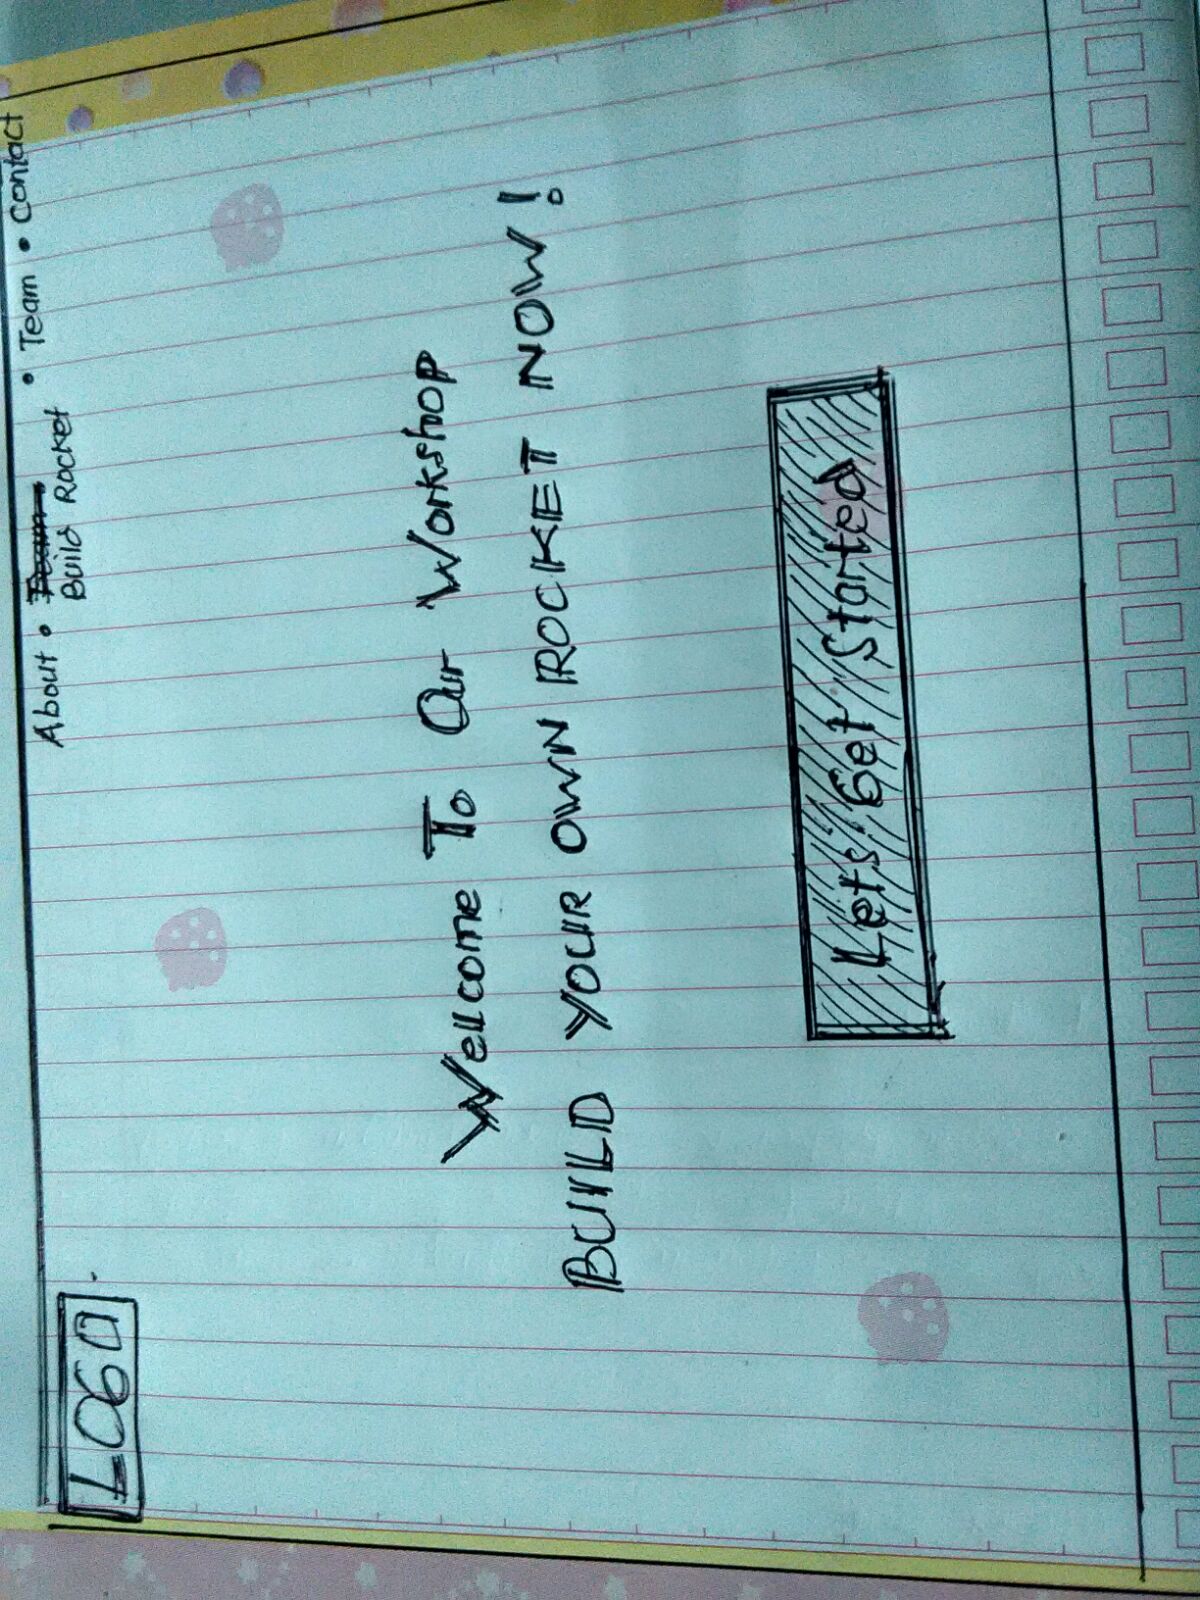 LOGO
About • Build Rocket • Team • Contact
Wellcome To Our Workshop
BUILD YOUR OWN ROCKET NOW!
Lets Get Started